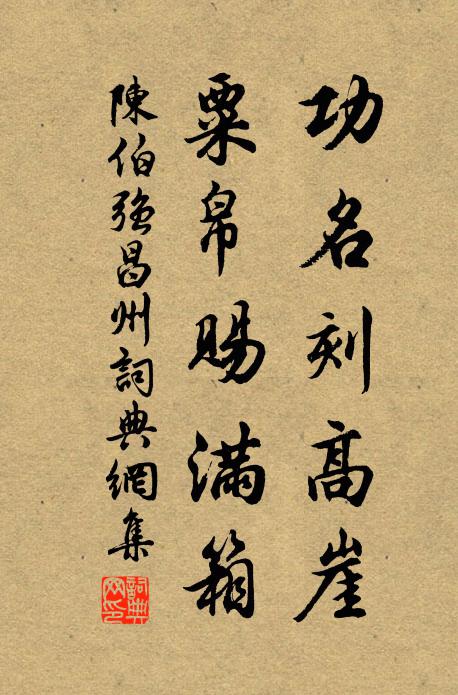 功名刻高崖
粟帛賜滿箱
陳伯强昌州詞典網集
詞典網印